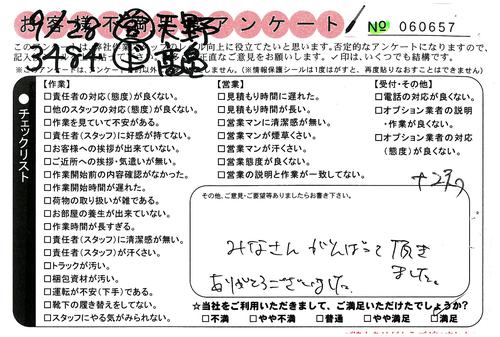 お客様不満足アンケート
9/28 天野
№ 060657
3484
このアンケートは、弊社作業
向上に役立てたいと思います。否定的なアンケートになりますので、
正直なご意見をお願いします。✓印は、いくつでも結構です。
(※情報保護シールは1度はがすと、再度貼りなおすことはできません)
チェックリスト
【作業】
□責任者の対応(態度)が良くない。
□他のスタッフの対応(態度)が良くない。
□作業を見ていて不安がある。
□責任者(スタッフ)に好感が持てない。
□お客様への挨拶が出来ていない。
□ご近所への挨拶・気遣いが無い。
□作業開始前の内容確認がなかった。
□作業開始時間が遅れた。
□荷物の取り扱いが雑である。
□お部屋の養生が出来ていない。
□作業時間が長すぎる。
□責任者(スタッフ)に清潔感が無い。
□責任者(スタッフ)が汗くさい。
□トラックが汚い。
□梱包資材が汚い。
□運転が不安(下手)である。
□靴下の履き替えをしてない。
□スタッフにやる気がみられない。
【営業】
□見積もり時間に遅れた。
□見積もり時間が長い。
□営業マンに清潔感が無い。
□営業マンが煙草くさい。
□営業マンが汗くさい。
□営業態度が良くない。
□営業の説明と作業が一致してない。
【受付・その他】
□電話の対応が良くない。
□オプション業者の説明
・作業が良くない。
□オプション業者の対応
(態度)が良くない。
その他、ご意見・ご要望等ありましたらお書き下さい。
みなさん がんばって 頂き
ました。
ありがとうございました。
☆当社をご利用いただきまして、ご満足いただけたでしょうか?
□不満 □やや不満 □普通 □やや満足 □満足